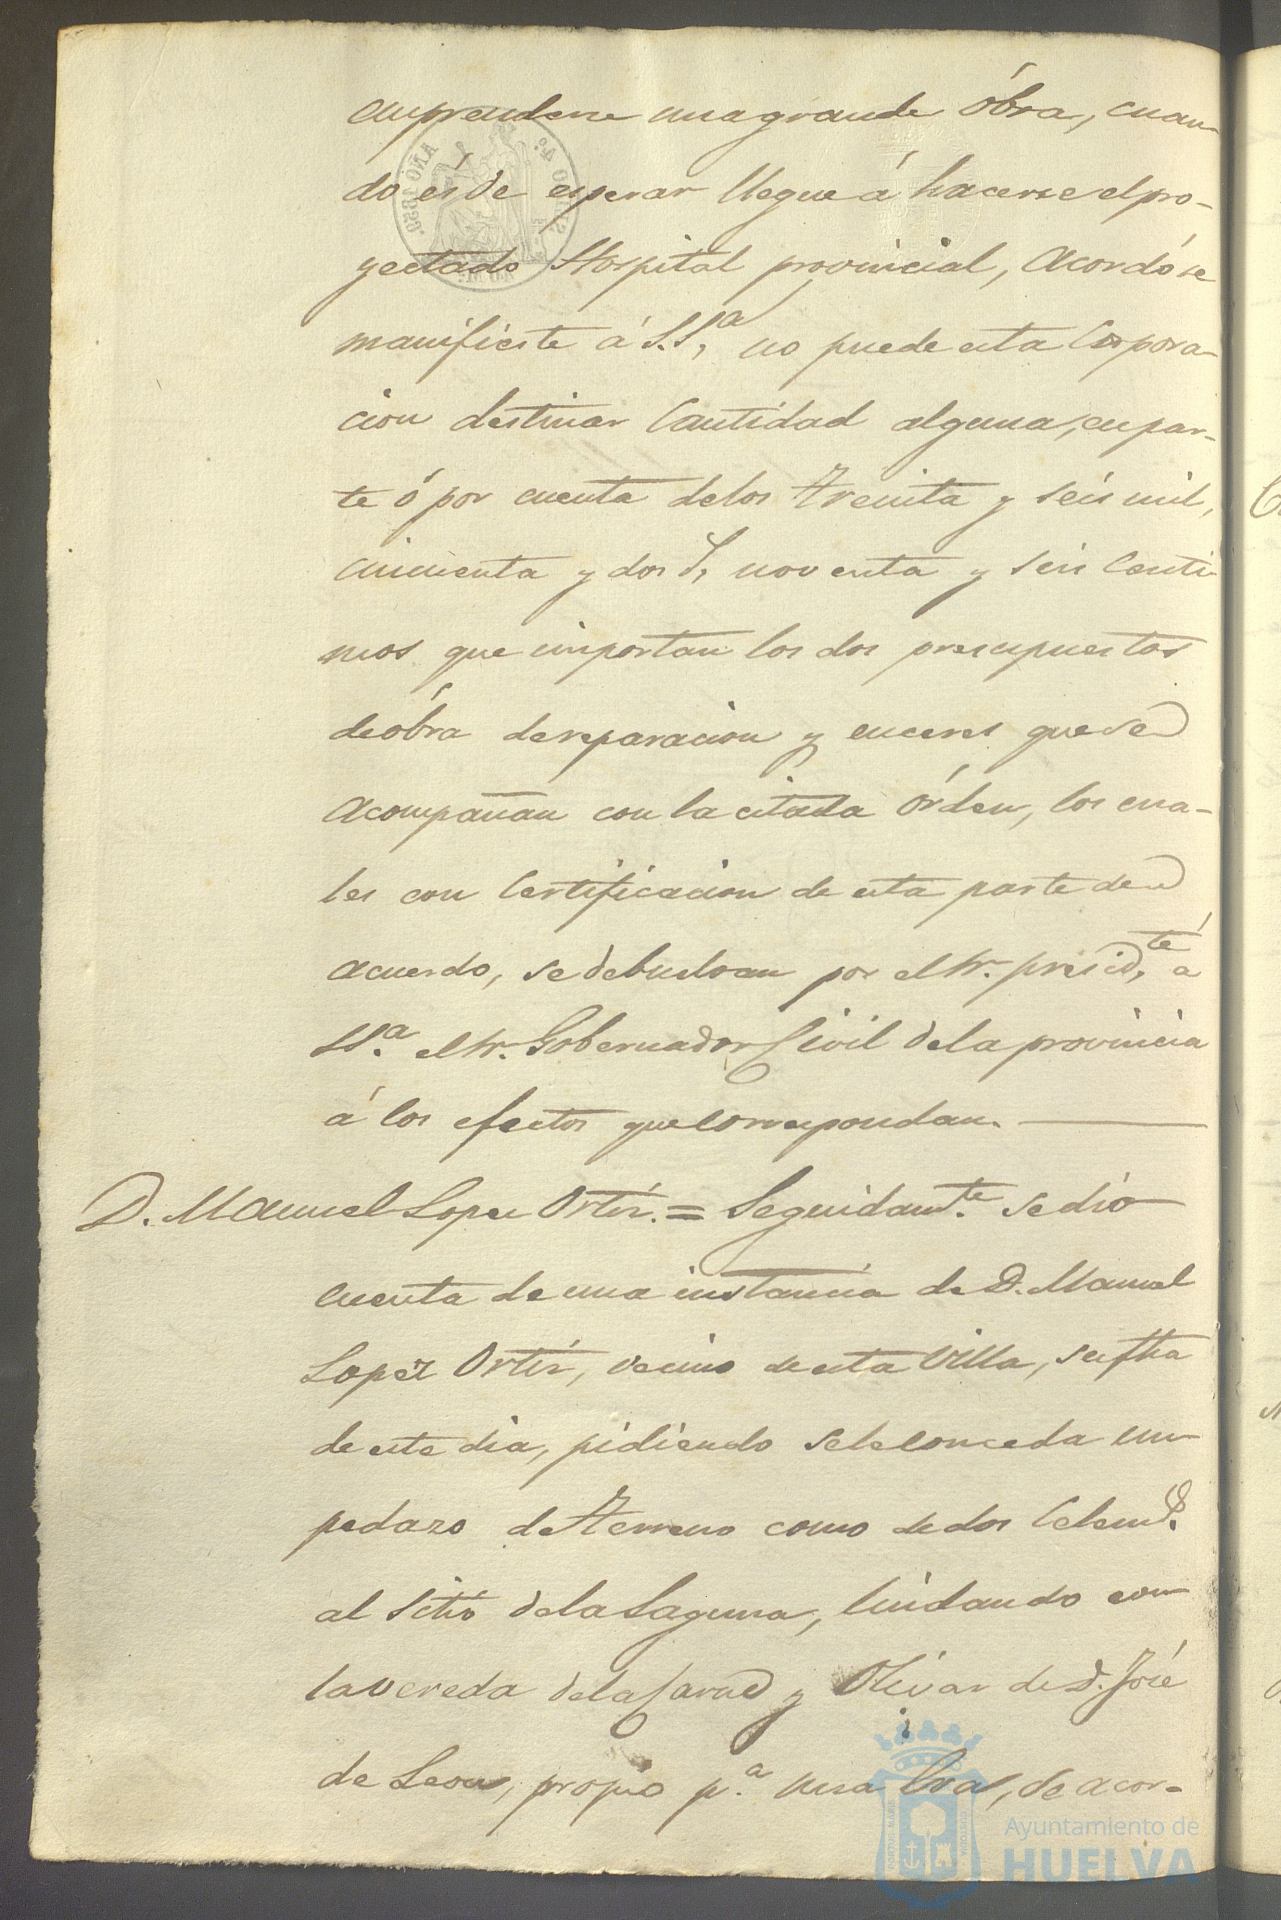 emprenderse una grande óbra, cuan-
do és de esperar llegue á hacerse el pro-
yectado Hospital provincial, Acordóse
manifieste á S.Sª, no puede esta Corpora-
cion destinar Cantidad alguna, en par-
te ó por cuenta de los treinta y seis mil,
cincuenta y dos r, noventa y seis Centi-
mos que importan los dos presupuestos
de óbra de reparacion y enceres que se
acompañan con la citada órden, los cua-
les con Certificacion de esta parte de
acuerdo, se debuelvan por el Sr. presidte, á
SSª. el Sr. Gobernador Civil de la provincia
á los efectos que correspondan.
D. Manuel Lopez Ortiz. = Seguidamte. se dió
cuenta de una instancia de D. Manuel
Lopez Ortiz, vecino de esta Villa, su fha
de este dia, pidiendo se le conceda un
pedazo de terreno como de dos Celems.
al Sitio de la Laguna, lindando con
la vereda de la Carne y Olivar de D. José
de Leon, propio pª. una Era, se acor-
Ayuntamiento de
HUELVA